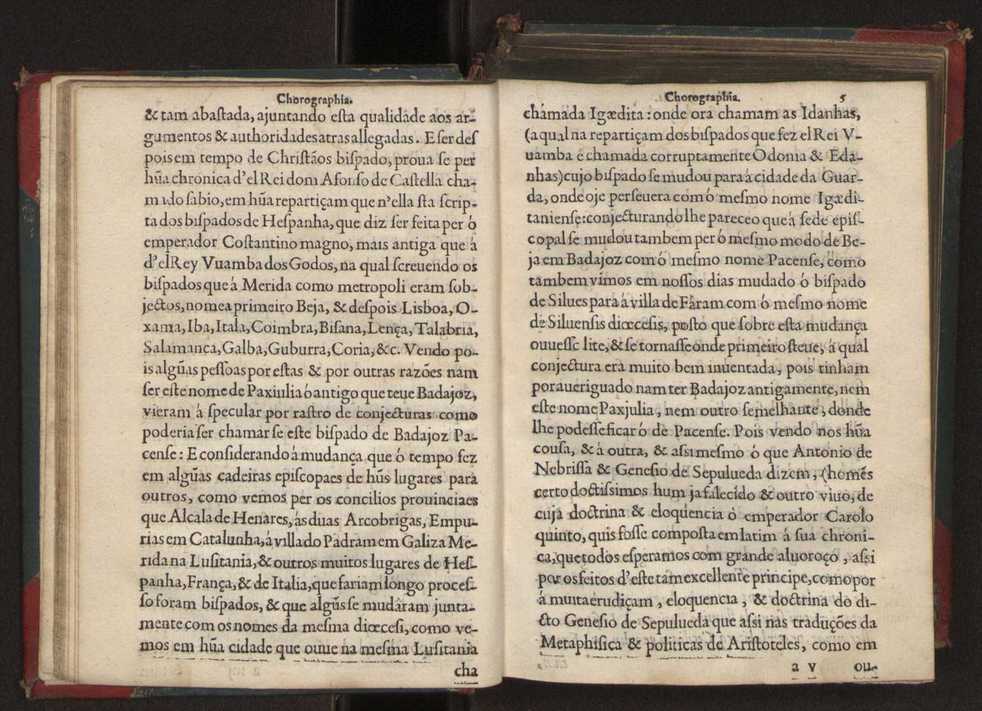 Chorographia.
& tam abaſtada, ajuntando eſta qualidade aos ar-
gumentos & authoridades atras allegadas. E ſer deſ
pois em tempo de Chriſtãos biſpado, proua ſe per
hũa chronica d'el Rei dom Afonſo de Caſtella cha-
mado ſabio, em hũa repartiçam que n'ella ſta ſcrip-
ta dos biſpados de Heſpanha, que diz ſer feita per ó
emperador Coſtantino magno, mais antiga que á
d'el Rey Vuamba dos Godos, na qual ſcreuendo os
biſpados que á Merida como metropoli eram ſob-
jectos, nomea primeiro Beja, & deſpois Lisboa, O-
xama, Iba, Itala, Coimbra, Biſana, Lença, Talabria,
Salamanca, Galba, Guburra, Coria, &c. Vendo po-
is algũas peſſoas por eſtas & por outras razões nam
ſer eſte nome de Paxiulia ó antigo que teue Badajoz,
vieram á ſpecular por raſtro de conjecturas como
poderia ſer chamarſe eſte biſpado de Badajoz Pa-
cenſe: E conſiderando á mudança que ó tempo fez
em algũas cadeiras epiſcopaes de hũs lugares para
outros, como vemos per os concilios prouinciaes
que Alcala de Henares, ás duas Arcobrigas, Empu-
rias em Catalunha, á villa do Padram em Galiza Me-
rida na Luſitania, & outros muitos lugares de Heſ-
panha, França, & de Italia, que fariam longo proceſ-
ſo foram biſpados, & que algũs ſe mudáram junta-
mente com os nomes da meſma diœceſi, como ve-
mos em hũa cidade que ouue na meſma Luſitania
cha
Chorographia. 5
chámada Igædita: onde ora chamam as Idanhas,
(a qual na repartiçam dos biſpados que fez el Rei V-
uamba é chamada corruptamente Odonia & Eda-
nhas) cujo biſpado ſe mudou para á cidade da Guar-
da, onde oje perſeuera com ó meſmo nome Igædi-
tanienſe: conjecturando lhe pareceo que á ſede epiſ-
copal ſe mudou tambem per ó meſmo modo de Be-
ja em Badajoz com ó meſmo nome Pacenſe, como
tambem vimos em noſſos dias mudado ó biſpado
de Silues para á villa de Fáram com ó meſmo nome
de Siluenſis diœceſis, poſto que ſobre eſta mudança
ouueſſe lite, & ſe tornaſſe onde primeiro ſteue, á qual
conjectura era muito bem inuentada, pois tinham
por aueriguado nam ter Badajoz antigamente, nem
eſte nome Paxjulia, nem outro ſemelhante, donde
lhe podeſſe ficar ó de Pacenſe. Pois vendo nos hũa
couſa, & á outra, & aſsi meſmo ó que Antonio de
Nebriſſa & Geneſio de Sepulueda dizem, (homẽs
certo doctiſsimos hum ja falecido & outro viuo, de
cuja doctrina & eloquencia ó emperador Carolo
quinto, quis foſſe compoſta em latim á ſua chroni-
ca, que todos eſperamos com grande aluoroço, aſsi
por os feitos d'eſte tam excellente principe, como por
á muita erudiçam, eloquencia, & doctrina do di-
cto Geneſio de Sepulueda que aſsi nas traduções da
Metaphiſica & politicas de Ariſtoteles, como em
a V ou-